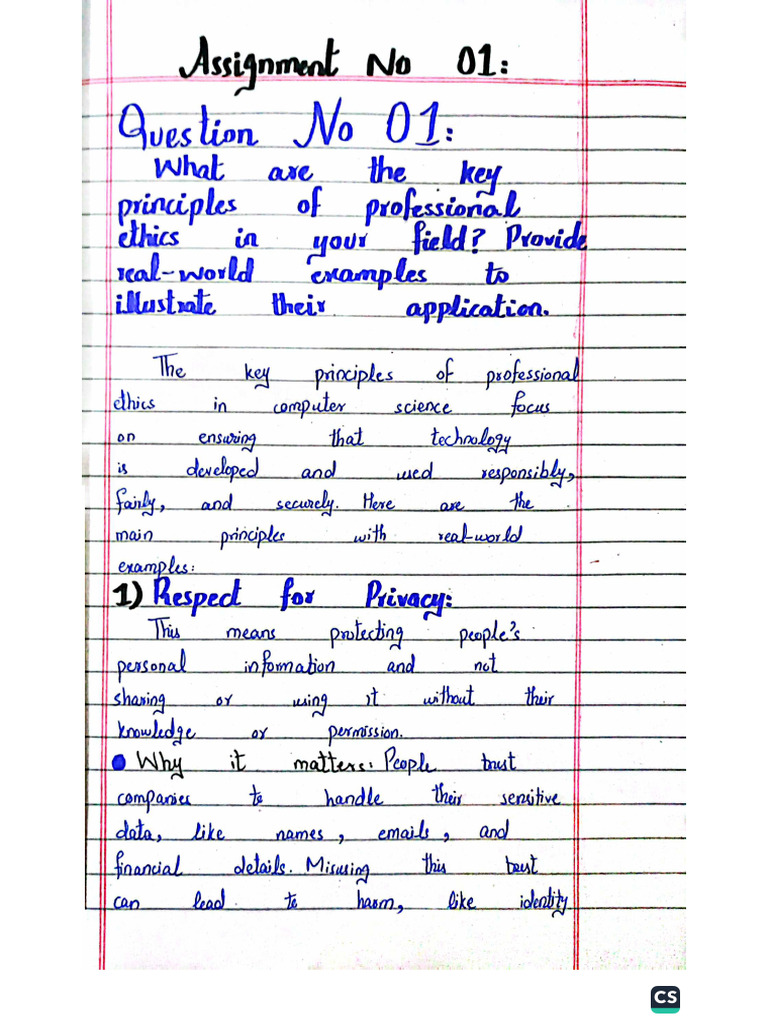 Assignment No 01:
Question No 01:
What are the key
principles of professional
ethics in your field? Provide
real-world examples to
illustrate their application.
The key principles of professional
ethics in computer science focus
on ensuring that technology
is developed and used responsibly,
fairly, and securely. Here are the
main principles with real-world
examples:
1) Respect for Privacy:
This means protecting people's
personal information and not
sharing or using it without their
knowledge or permission.
• Why it matters: People trust
companies to handle their sensitive
data, like names, emails, and
financial details. Misusing this trust
can lead to harm, like identity
CS